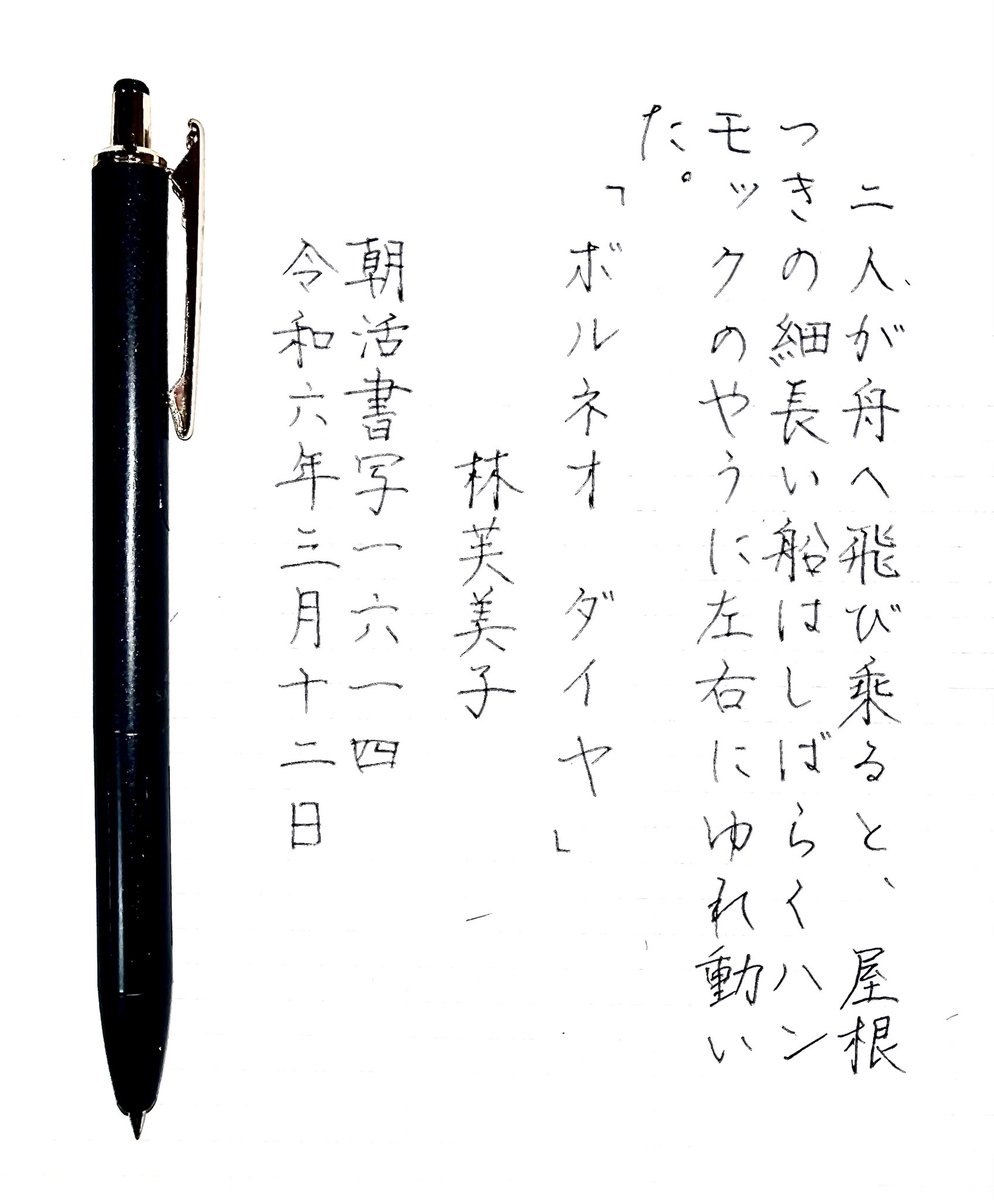 二人が舟へ飛び乗ると、屋根
つきの細長い船はしばらくハン
モックのやうに左右にゆれ動い
た。
「ボルネオ　ダイヤ」
林芙美子
朝活書写一六一四
令和六年三月十二日